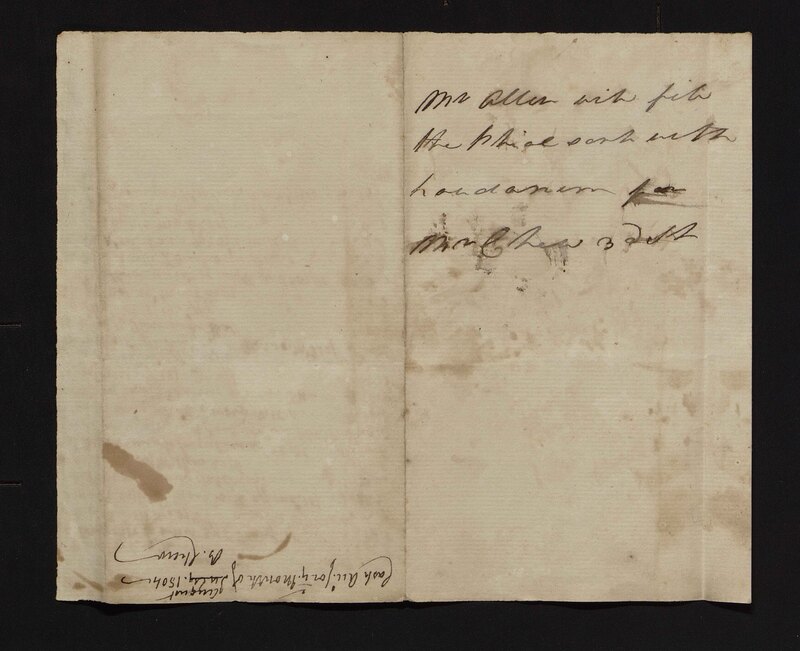 Mr Allen will fill
the phial sent with
Laudanum for
Mr Chew 3d St
Cash Acct for ye Month of
August
July, 1804
B. Chew